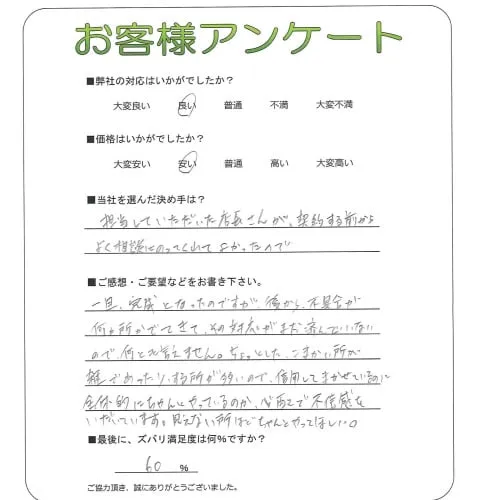 お客様アンケート
■弊社の対応はいかがでしたか?
大変良い 良い 普通 不満 大変不満
■価格はいかがでしたか?
大変安い 安い 普通 高い 大変高い
■当社を選んだ決め手は?
担当していただいた店長さんが、契約する前から
よく相談にのってくれてよかったので
■ご感想・ご要望などをお書き下さい。
一旦、完成となったのですが、後から、不具合が
何ヶ所かでてきて、その対応がまだ済んでいない
ので、何とも言えません。ちょっとした、こまかい所が
雑であったりする所が多いので、信用してまかせているのに
全体的にちゃんとやっているのか、心配で不信感を
いだいています。見えない所までちゃんとやってほしい。
■最後に、ズバリ満足度は何%ですか?
60 %
ご協力頂き、誠にありがとうございました。